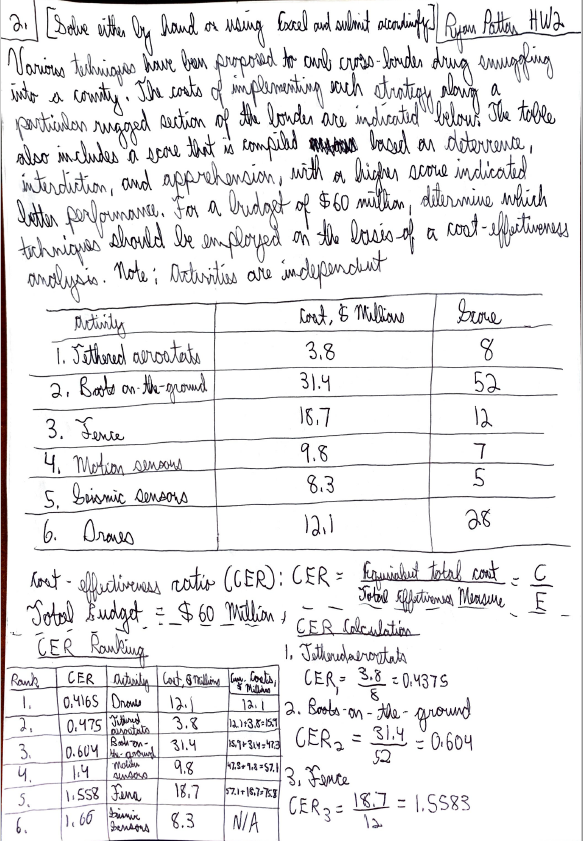 2. [Solve either by hand or using Excel and submit accordingly] Ryan Patton HW2
Various techniques have been proposed to curb cross-border drug smuggling
into a country. The costs of implementing each strategy along a
particular rugged section of the border are indicated below. The table
also includes a score that is compiled based on deterrence,
interdiction, and apprehension, with a higher score indicated
better performance. For a budget of $60 million, determine which
techniques should be employed on the basis of a cost-effectiveness
analysis. Note: Activities are independent
Activity Cost, $ Millions Score
1. Tethered aerostats 3.8 8
2. Boots on-the-ground 31.4 52
3. Fence 18.7 12
4. Motion sensors 9.8 7
5. Seismic sensors 8.3 5
6. Drones 12.1 28
Cost-effectiveness ratio (CER): CER = Equivalent total cost / Total Effectiveness Measure = C / E
Total Budget = $60 Million,
CER Ranking
Rank CER Activity Cost, $ Millions Cum. Costs, $ Millions
1. 0.4165 Drones 12.1 12.1
2. 0.475 Tethered aerostats 3.8 12.1+3.8=15.9
3. 0.604 Boots-on-the-ground 31.4 15.9+31.4=47.3
4. 1.4 Motion sensors 9.8 47.3+9.8=57.1
5. 1.558 Fence 18.7 57.1+18.7=75.8
6. 1.66 Seismic Sensors 8.3 N/A
CER Calculation
1. Tethered aerostats
CER₁ = 3.8 / 8 = 0.4375
2. Boots-on-the-ground
CER₂ = 31.4 / 52 = 0.604
3. Fence
CER₃ = 18.7 / 12 = 1.5583